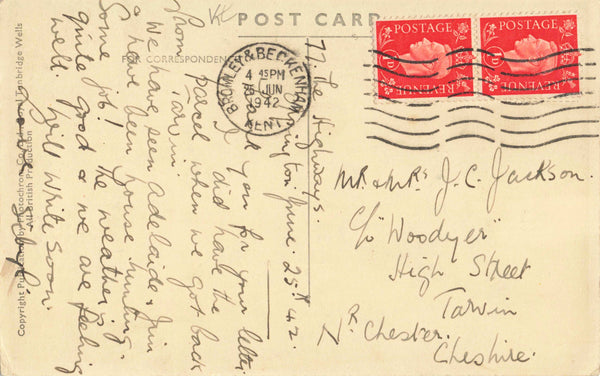 POST CARD
FOR CORRESPONDENCE
POSTAGE
1D
REVENUE
POSTAGE
1D
REVENUE
BROMLEY & BECKENHAM
4 45 PM
25 JUN
1942
KENT
77 The Highways.
June. 25th 42.
you for your letter.
I did have the
parcel when we got back
from Tarvin.
We have seen Adelaide & Jim
& have been house hunting.
Some job! The weather is
quite good & we are feeling
well. Will write soon.
Love
Mr & Mrs J. C. Jackson.
c/o "Woodyer"
High Street
Tarvin
Nr Chester.
Cheshire.
Copyright Published by Photochrom Co. Ltd., Tunbridge Wells
All British Production